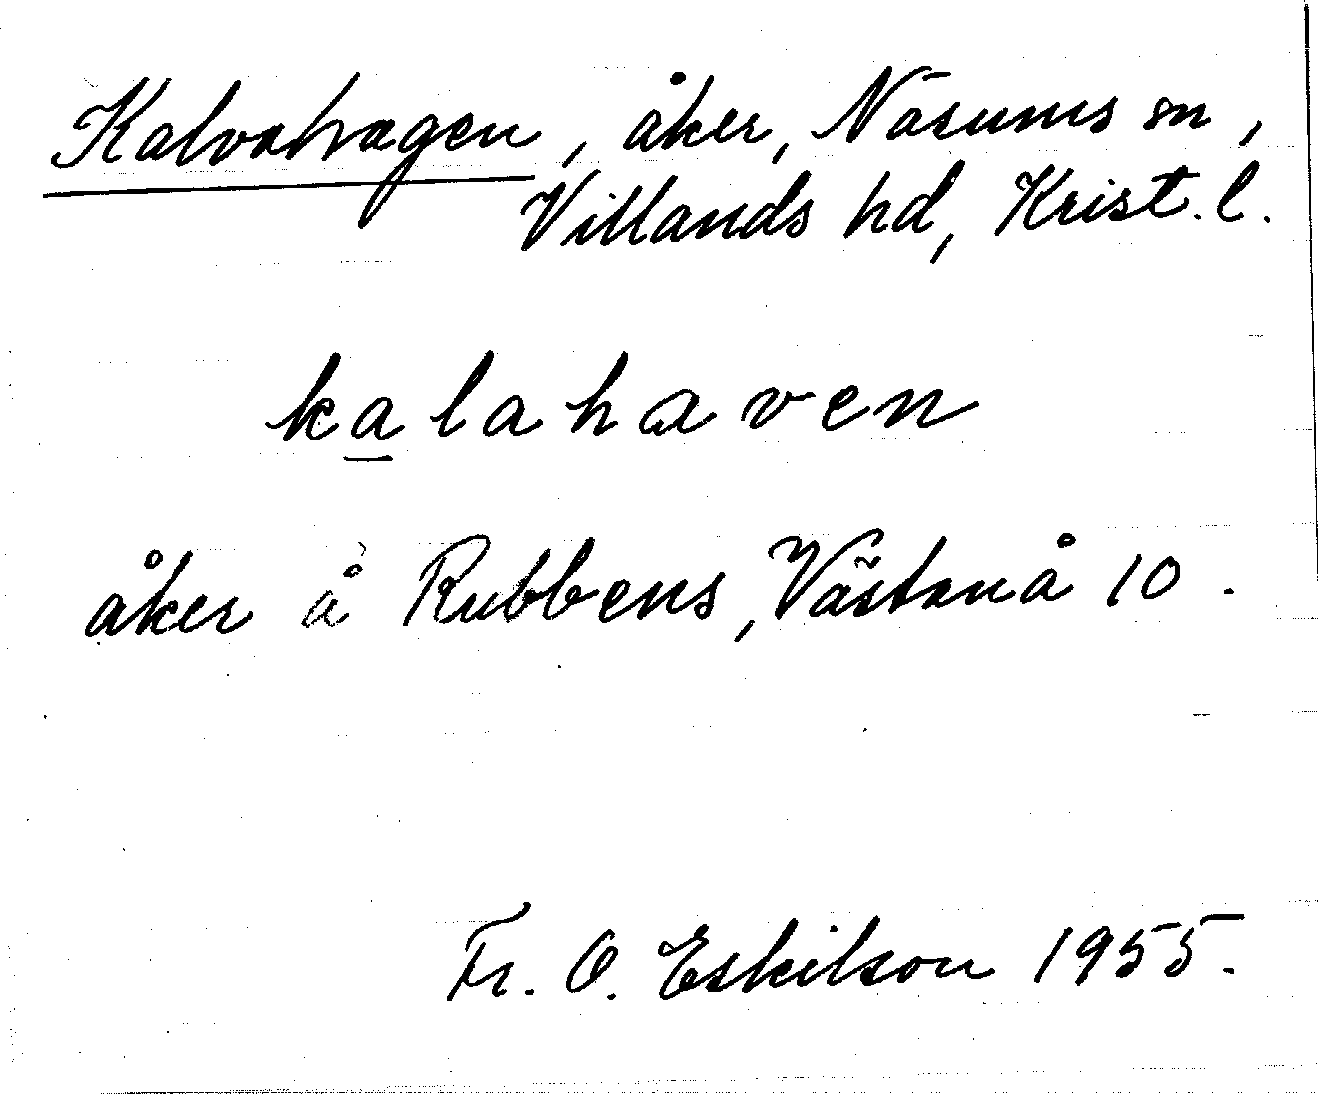 Kalvahagen, åker, Näsums sn,
Villands hd, Krist. l.
kalahaven
åker å Rubbens, Västanå 10.
Fr. O. Eskilson 1955.